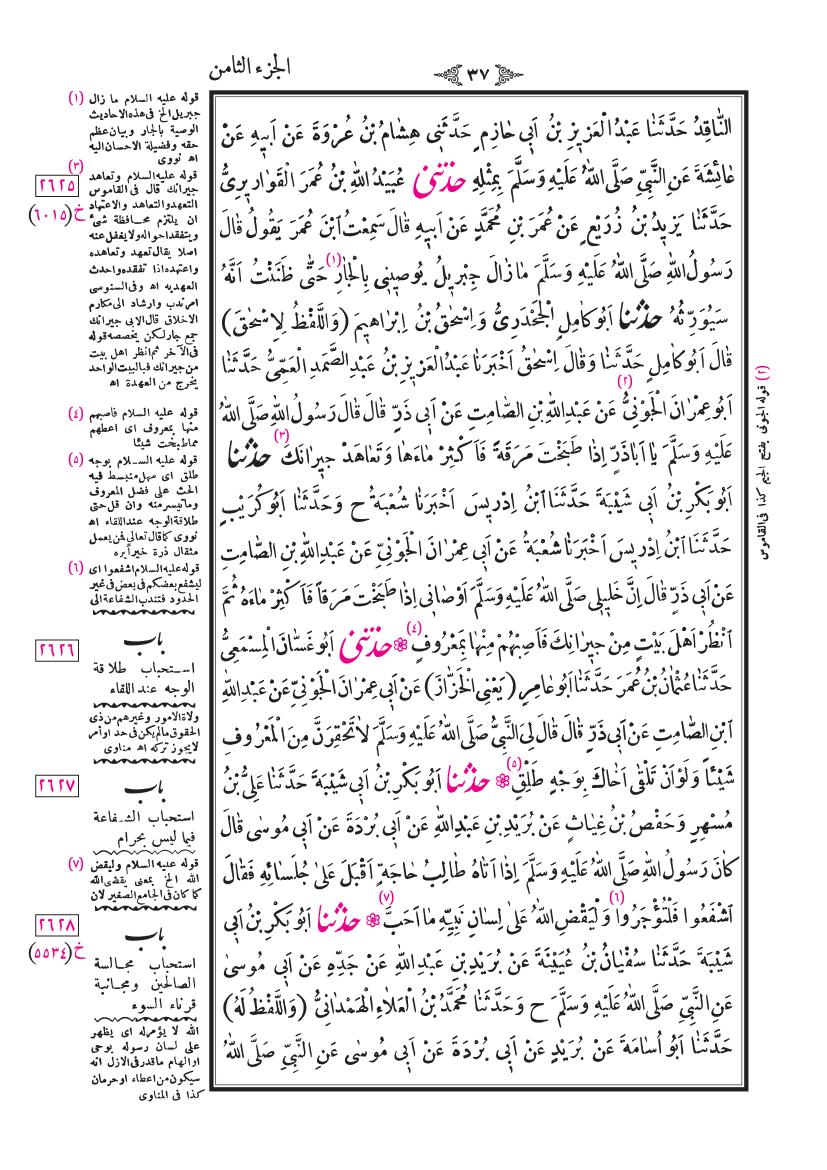 ٣٧
الجزء الثامن
النَّاقِدُ حَدَّثَنَا عَبْدُ الْعَزِيزِ بْنُ اَبِى حَازِمٍ حَدَّثَنِى هِشَامُ بْنُ عُرْوَةَ عَنْ اَبِيهِ عَنْ
عَائِشَةَ عَنِ النَّبِىِّ صَلَّى اللّٰهُ عَلَيْهِ وَسَلَّمَ بِمِثْلِهِ حَدَّثَنِى عُبَيْدُ اللّٰهِ بْنُ عُمَرَ الْقَوَارِيرِىُّ
حَدَّثَنَا يَزِيدُ بْنُ زُرَيْعٍ عَنْ عُمَرَ بْنِ مُحَمَّدٍ عَنْ اَبِيهِ قَالَ سَمِعْتُ ابْنَ عُمَرَ يَقُولُ قَالَ
رَسُولُ اللّٰهِ صَلَّى اللّٰهُ عَلَيْهِ وَسَلَّمَ مَا زَالَ جِبْرِيلُ يُوصِينِى بِالْجَارِ (١) حَتّٰى ظَنَنْتُ اَنَّهُ
سَيُوَرِّثُهُ حَدَّثَنَا اَبُو كَامِلٍ الْجَحْدَرِىُّ وَ اِسْحٰقُ بْنُ اِبْرَاهِيمَ (وَاللَّفْظُ لِاِسْحٰقَ)
قَالَ اَبُو كَامِلٍ حَدَّثَنَا وَقَالَ اِسْحٰقُ اَخْبَرَنَا عَبْدُ الْعَزِيزِ بْنُ عَبْدِ الصَّمَدِ الْعَمِّىُّ حَدَّثَنَا
اَبُو عِمْرَانَ الْجَوْنِىُّ (٢) عَنْ عَبْدِ اللّٰهِ بْنِ الصَّامِتِ عَنْ اَبِى ذَرٍّ قَالَ قَالَ رَسُولُ اللّٰهِ صَلَّى اللّٰهُ
عَلَيْهِ وَسَلَّمَ يَا اَبَا ذَرٍّ اِذَا طَبَخْتَ مَرَقَةً فَاَكْثِرْ مَاءَهَا وَتَعَاهَدْ جِيرَانَكَ (٣) حَدَّثَنَا
اَبُو بَكْرِ بْنُ اَبِى شَيْبَةَ حَدَّثَنَا ابْنُ اِدْرِيسَ اَخْبَرَنَا شُعْبَةُ ح وَحَدَّثَنَا اَبُو كُرَيْبٍ
حَدَّثَنَا ابْنُ اِدْرِيسَ اَخْبَرَنَا شُعْبَةُ عَنْ اَبِى عِمْرَانَ الْجَوْنِىِّ عَنْ عَبْدِ اللّٰهِ بْنِ الصَّامِتِ
عَنْ اَبِى ذَرٍّ قَالَ اِنَّ خَلِيلِى صَلَّى اللّٰهُ عَلَيْهِ وَسَلَّمَ اَوْصَانِى اِذَا طَبَخْتَ مَرَقًا فَاَكْثِرْ مَاءَهُ ثُمَّ
انْظُرْ اَهْلَ بَيْتٍ مِنْ جِيرَانِكَ فَاَصِبْهُمْ مِنْهَا بِمَعْرُوفٍ (٤) حَدَّثَنِى اَبُو غَسَّانَ الْمِسْمَعِىُّ
حَدَّثَنَا عُثْمَانُ بْنُ عُمَرَ حَدَّثَنَا اَبُو عَامِرٍ (يَعْنِى الْخَزَّازَ) عَنْ اَبِى عِمْرَانَ الْجَوْنِىِّ عَنْ عَبْدِ اللّٰهِ
ابْنِ الصَّامِتِ عَنْ اَبِى ذَرٍّ قَالَ قَالَ لِىَ النَّبِىُّ صَلَّى اللّٰهُ عَلَيْهِ وَسَلَّمَ لَا تَحْقِرَنَّ مِنَ الْمَعْرُوفِ
شَيْئًا وَلَوْ اَنْ تَلْقٰى اَخَاكَ بِوَجْهٍ طَلْقٍ (٥) حَدَّثَنَا اَبُو بَكْرِ بْنُ اَبِى شَيْبَةَ حَدَّثَنَا عَلِىُّ بْنُ
مُسْهِرٍ وَحَفْصُ بْنُ غِيَاثٍ عَنْ بُرَيْدِ بْنِ عَبْدِ اللّٰهِ عَنْ اَبِى بُرْدَةَ عَنْ اَبِى مُوسٰى قَالَ
كَانَ رَسُولُ اللّٰهِ صَلَّى اللّٰهُ عَلَيْهِ وَسَلَّمَ اِذَا اَتَاهُ طَالِبُ حَاجَةٍ اَقْبَلَ عَلٰى جُلَسَائِهِ فَقَالَ
اشْفَعُوا فَلْتُؤْجَرُوا (٦) وَلْيَقْضِ اللّٰهُ عَلٰى لِسَانِ نَبِيِّهِ مَا اَحَبَّ (٧) حَدَّثَنَا اَبُو بَكْرِ بْنُ اَبِى
شَيْبَةَ حَدَّثَنَا سُفْيَانُ بْنُ عُيَيْنَةَ عَنْ بُرَيْدِ بْنِ عَبْدِ اللّٰهِ عَنْ جَدِّهِ عَنْ اَبِى مُوسٰى
عَنِ النَّبِىِّ صَلَّى اللّٰهُ عَلَيْهِ وَسَلَّمَ ح وَحَدَّثَنَا مُحَمَّدُ بْنُ الْعَلَاءِ الْهَمْدَانِىُّ (وَاللَّفْظُ لَهُ)
حَدَّثَنَا اَبُو اُسَامَةَ عَنْ بُرَيْدٍ عَنْ اَبِى بُرْدَةَ عَنْ اَبِى مُوسٰى عَنِ النَّبِىِّ صَلَّى اللّٰهُ
(٢) قوله الجونى بفتح الجيم كذا فى القاموس
(١) قوله عليه السلام ما زال
جبريل الخ فى هذه الاحاديث
الوصية بالجار وبيان عظم
حقه وفضيلة الاحسان اليه
اه نووى
(٣) قوله عليه السلام وتعاهد
جيرانك قال فى القاموس
التعهد والتعاهد والاعتهاد
ان يلتزم محافظة شئ
ويتفقد احواله ولا يغفل عنه
اصلا يقال تعهد وتعاهده
واعتهده اذا تفقده واحدث
العهد به اه وفى السنوسى
امر ندب وارشاد الى مكارم
الاخلاق قال الابى جيرانك
جمع جار لكن يخصصه قوله
فى الآخر ثم انظر اهل بيت
من جيرانك فبالبيت الواحد
يخرج من العهدة اه
(٤) قوله عليه السلام فاصبهم
منها بمعروف اى اعطهم
مما طبخت شيئا
(٥) قوله عليه السلام بوجه
طلق اى سهل منبسط فيه
الحث على فضل المعروف
وما تيسر منه وان قل حتى
طلاقة الوجه عند اللقاء اه
نووى كما قال تعالى فمن يعمل
مثقال ذرة خيرا يره
(٦) قوله عليه السلام اشفعوا اى
ليشفع بعضكم فى بعض فى غير
الحدود فتندب الشفاعة الى
باب
استحباب طلاقة
الوجه عند اللقاء
ولاة الامور وغيرهم من ذى
الحقوق مالم يكن فى حد او امر
لا يجوز تركه اه مناوى
باب
استحباب الشفاعة
فيما ليس بحرام
(٧) قوله عليه السلام وليقض
الله الخ بمعنى يقضى الله
كما كان فى الجامع الصغير لان
باب
استحباب مجالسة
الصالحين ومجانبة
قرناء السوء
الله لا يؤمر له اى يظهر
على لسان رسوله بوحى
او الهام ما قدر فى الازل انه
سيكون من اعطاء او حرمان
كذا فى المناوى
٢٦٢٥
خ (٦٠١٥)
٢٦٢٦
٢٦٢٧
٢٦٢٨
خ (٥٥٣٤)